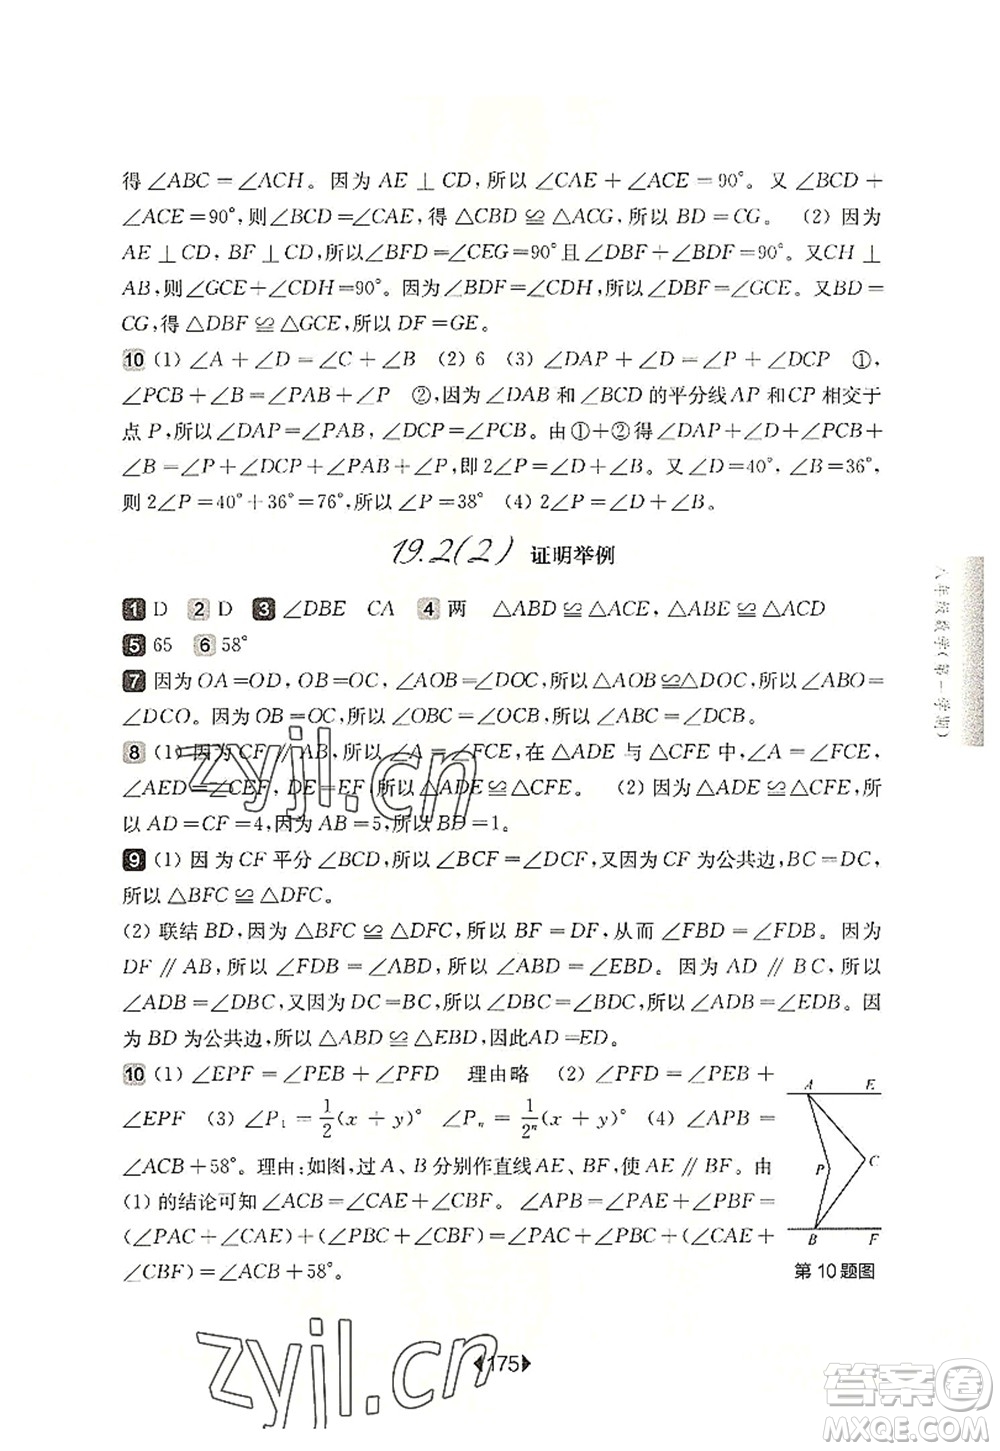 得 ∠ABC = ∠ACH。因为 AE ⊥ CD, 所以 ∠CAE + ∠ACE = 90°。又 ∠BCD +
∠ACE = 90°, 则∠BCD = ∠CAE, 得 △CBD ≌ △ACG, 所以 BD = CG。 (2) 因为
AE ⊥ CD, BF ⊥ CD, 所以∠BFD = ∠CEG = 90°且 ∠DBF + ∠BDF = 90°。又CH ⊥
AB, 则 ∠GCE + ∠CDH = 90°。因为 ∠BDF = ∠CDH, 所以 ∠DBF = ∠GCE。又BD =
CG, 得 △DBF ≌ △GCE, 所以 DF = GE。
10 (1) ∠A + ∠D = ∠C + ∠B (2) 6 (3) ∠DAP + ∠D = ∠P + ∠DCP ①,
∠PCB + ∠B = ∠PAB + ∠P ②, 因为 ∠DAB 和 ∠BCD 的平分线 AP 和 CP 相交于
点 P, 所以 ∠DAP = ∠PAB, ∠DCP = ∠PCB。由 ①+②得 ∠DAP + ∠D + ∠PCB +
∠B = ∠P + ∠DCP + ∠PAB + ∠P, 即 2∠P = ∠D + ∠B。又 ∠D = 40°, ∠B = 36°,
则 2∠P = 40° + 36° = 76°, 所以 ∠P = 38° (4) 2∠P = ∠D + ∠B。
19.2(2) 证明举例
1 D 2 D 3 ∠DBE CA 4 两 △ABD ≌ △ACE, △ABE ≌ △ACD
5 65 6 58°
7 因为 OA = OD, OB = OC, ∠AOB = ∠DOC, 所以 △AOB ≌ △DOC, 所以 ∠ABO =
∠DCO。因为 OB = OC, 所以 ∠OBC = ∠OCB, 所以 ∠ABC = ∠DCB。
8 (1) 因为 CF ∥ AB, 所以 ∠A = ∠FCE, 在 △ADE 与 △CFE 中, ∠A = ∠FCE,
∠AED = ∠CEF, DE = EF, 所以 △ADE ≌ △CFE。 (2) 因为 △ADE ≌ △CFE, 所
以 AD = CF = 4, 因为 AB = 5, 所以 BD = 1。
9 (1) 因为 CF 平分 ∠BCD, 所以 ∠BCF = ∠DCF, 又因为 CF 为公共边, BC = DC,
所以 △BFC ≌ △DFC。
(2) 联结 BD, 因为 △BFC ≌ △DFC, 所以 BF = DF, 从而 ∠FBD = ∠FDB。因为
DF ∥ AB, 所以 ∠FDB = ∠ABD, 所以 ∠ABD = ∠EBD。因为 AD ∥ BC, 所以
∠ADB = ∠DBC, 又因为 DC = BC, 所以 ∠DBC = ∠BDC, 所以 ∠ADB = ∠EDB。因
为 BD 为公共边, 所以 △ABD ≌ △EBD, 因此AD = ED。
10 (1) ∠EPF = ∠PEB + ∠PFD 理由略 (2) ∠PFD = ∠PEB +
∠EPF (3) ∠P₁ = 1/2(x + y)° ∠Pₙ = 1/2ⁿ(x + y)° (4) ∠APB =
∠ACB + 58°。理由:如图, 过 A、B 分别作直线 AE、BF, 使 AE ∥ BF。由
(1) 的结论可知 ∠ACB = ∠CAE + ∠CBF。∠APB = ∠PAE + ∠PBF =
(∠PAC + ∠CAE) + (∠PBC + ∠CBF) = ∠PAC + ∠PBC + (∠CAE +
∠CBF) = ∠ACB + 58°。
A E
P C
B F
第 10 题图
八年级数学(第一学期)
175
zyjl.cn
zyjl.cn
答案圈
MXQE.COM